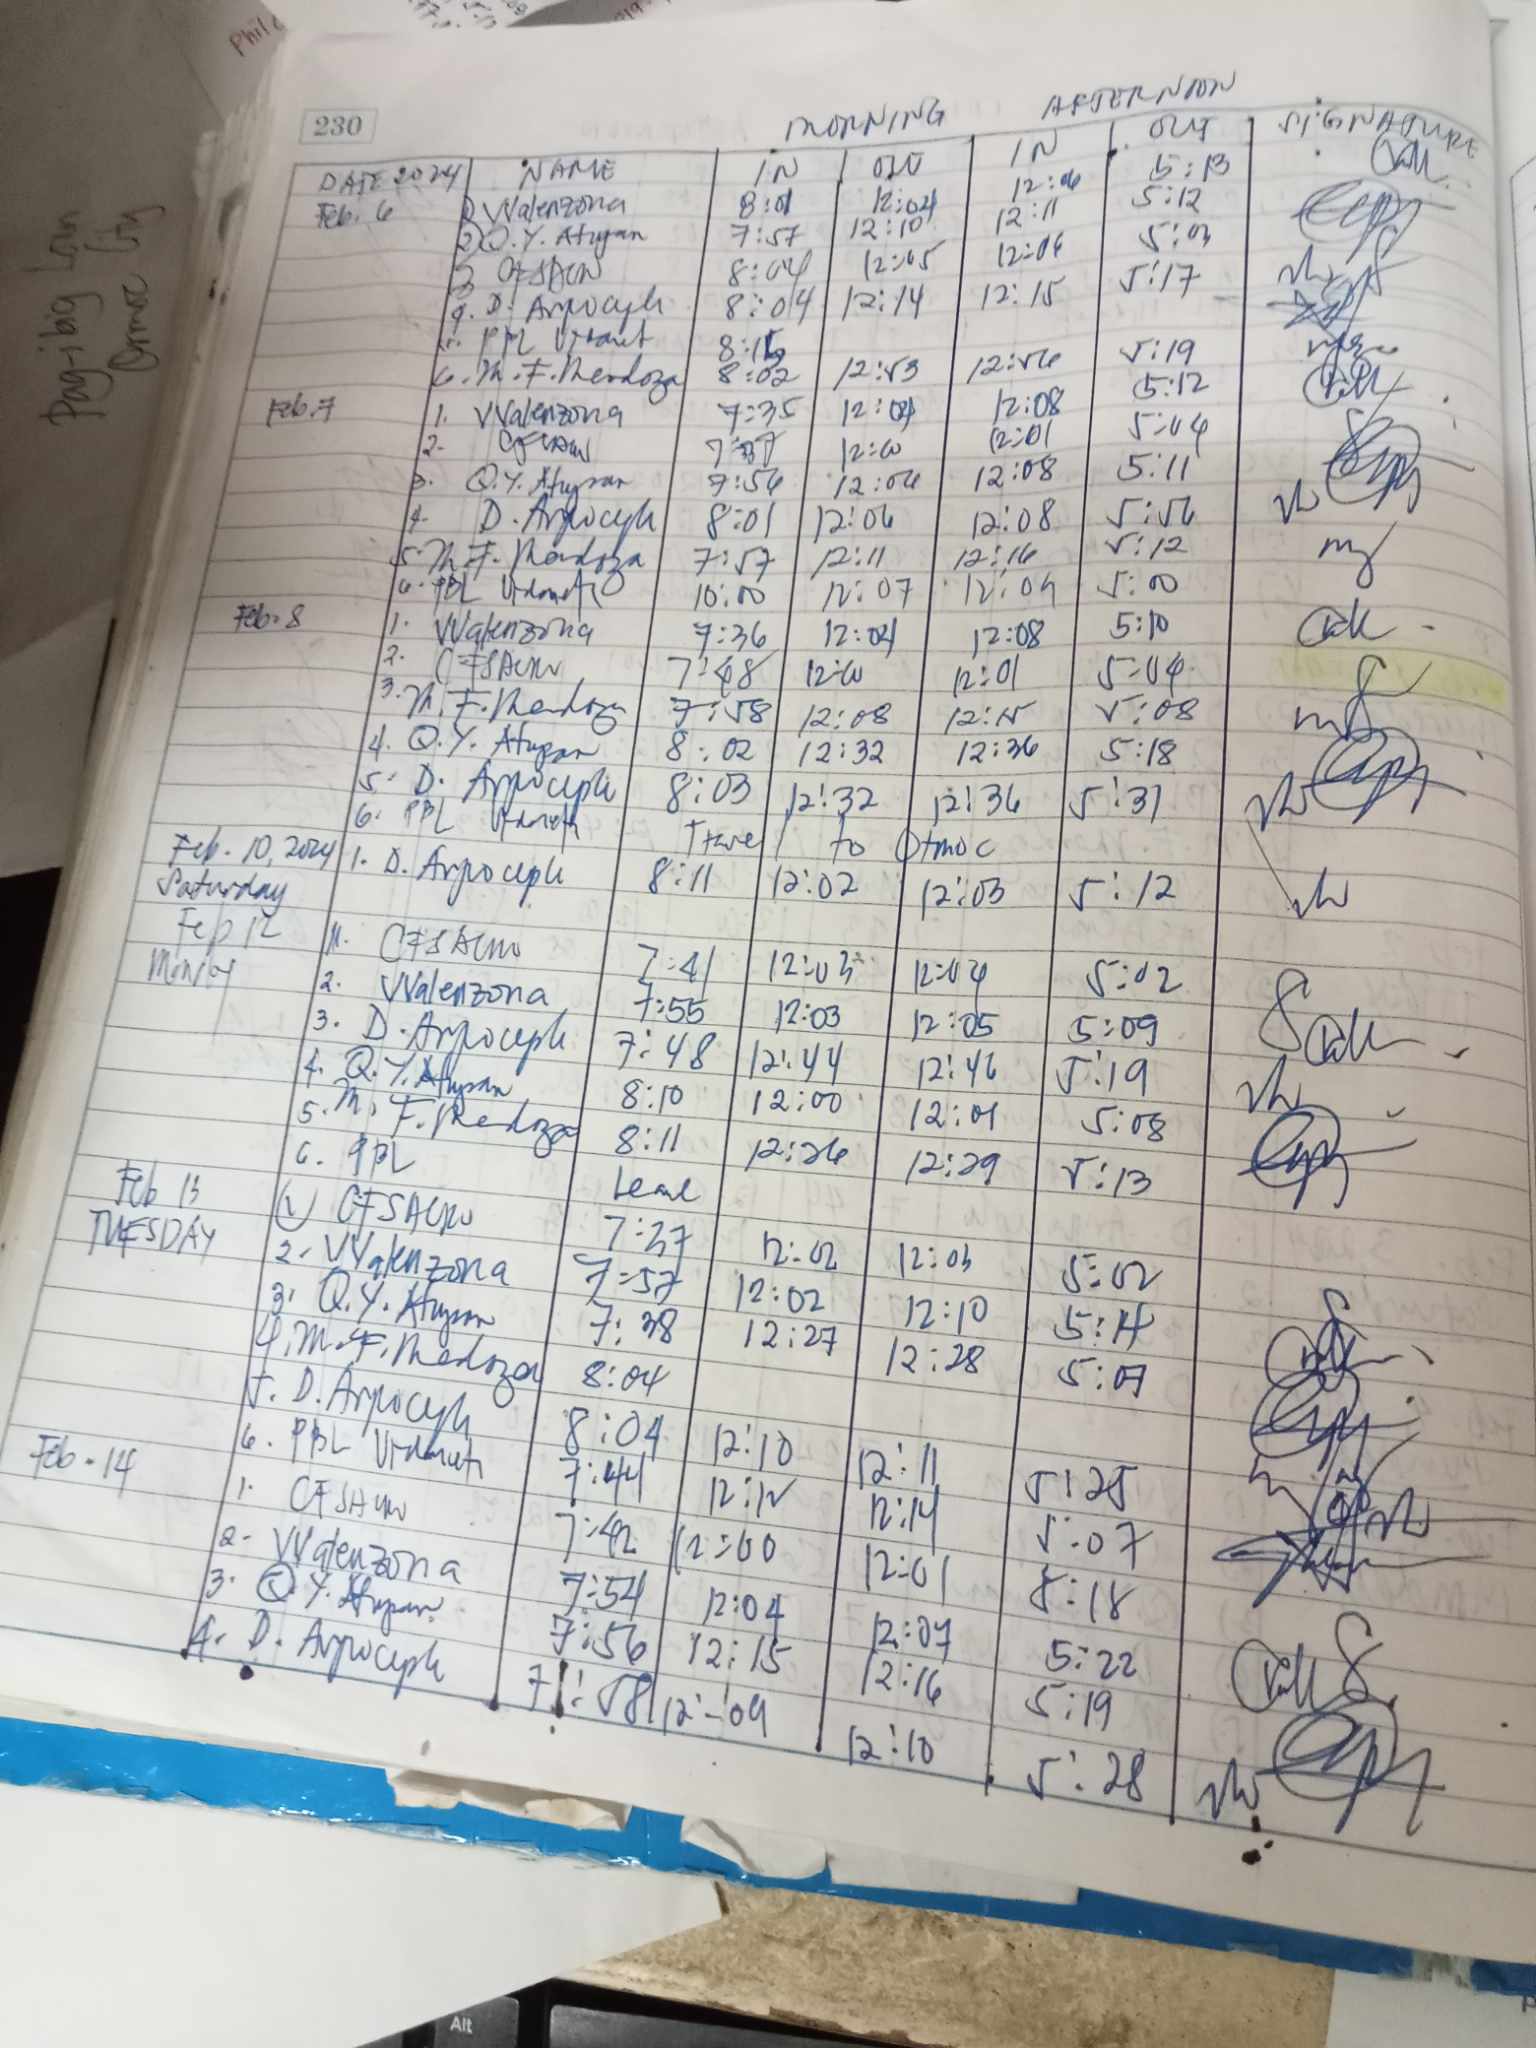 230
MORNING AFTERNOON
DATE 2024 NAME IN OUT IN OUT SIGNATURE
Feb. 6 1) VValenzona 8:01 12:04 12:06 5:13
2) Q.Y. Atupan 7:57 12:10 12:11 5:12
3 CFSACNO 8:04 12:05 12:06 5:03
4. D. Arpoceph 8:04 12:14 12:15 5:17
5. PBL 8:15
6. M. F. Mendoza 8:02 12:53 12:56 5:19
Feb. 7 1. VValenzona 7:35 12:04 12:08 5:12
2- 12:00 12:01 5:04
3. Q.Y. Atupan 7:56 12:06 12:08 5:11
4- D. Arpoceph 8:01 12:06 12:08 5:56
5. M. F. Mendoza 7:57 12:11 12:16 5:12
6. PBL 10:00 12:07 12:09 5:00
Feb. 8 1. VValenzona 7:36 12:04 12:08 5:10
2. 7:48 12:00 12:01 5:04
3. M. F. Mendoza 7:58 12:08 12:15 5:08
4. Q.Y. Atupan 8:02 12:32 12:36 5:18
5. D. Arpoceph 8:03 12:32 12:36 5:31
6. PBL Travel to Ormoc
Feb. 10, 2024 1. D. Arpoceph 8:11 12:02 12:03 5:12
Saturday
Feb 12 1. 7:41 12:03 12:04 5:02
Monday 2. VValenzona 7:55 12:03 12:05 5:09
3. D. Arpoceph 7:48 12:44 12:46 5:19
4. Q.Y. Atupan 8:10 12:00 12:01 5:08
5. M. F. Mendoza 8:11 12:26 12:29 5:13
6. PBL Leave
Feb 13 1. 7:27 12:02 12:03 5:02
TUESDAY 2. VValenzona 7:57 12:02 12:10 5:14
3. Q.Y. Atupan 7:38 12:27 12:28 5:07
4. M. F. Mendoza 8:04
5. D. Arpoceph 8:04 12:10 12:11 5:25
6. PBL 7:44 12:12 12:14 5:07
Feb. 14 1. 7:42 12:00 12:01 5:18
2. VValenzona 7:54 12:04 12:07 5:22
3. Q.Y. Atupan 7:56 12:15 12:16 5:19
4. D. Arpoceph 7:58 12:09 12:10 5:28
Pag-ibig Loan
Ormoc City
Alt